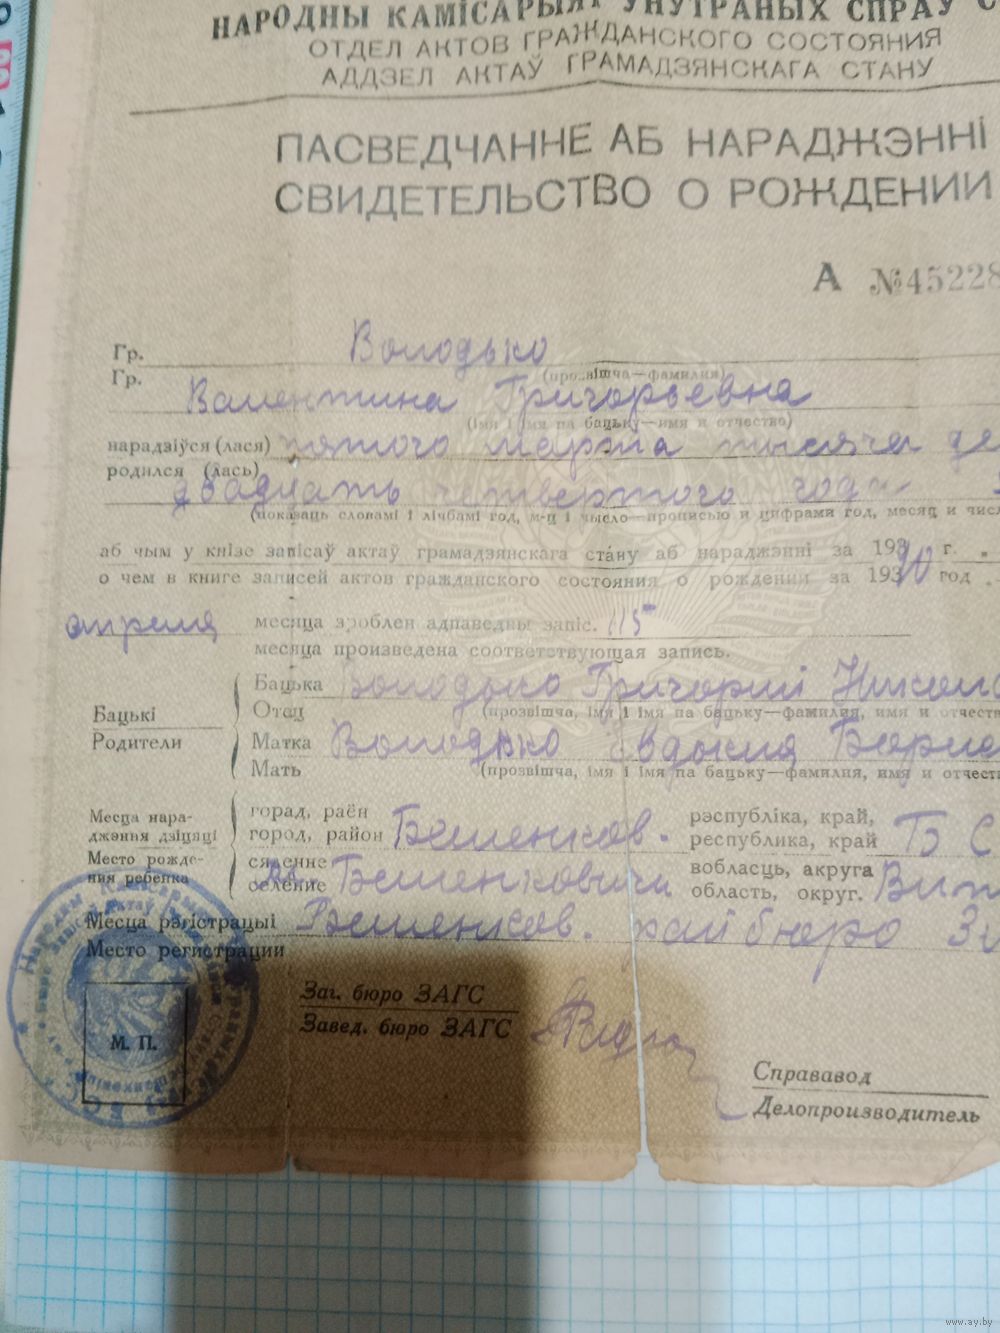 НАРОДНЫ КАМІСАРЫЯТ УНУТРАНЫХ СПРАЎ С
ОТДЕЛ АКТОВ ГРАЖДАНСКОГО СОСТОЯНИЯ
АДДЗЕЛ АКТАЎ ГРАМАДЗЯНСКАГА СТАНУ
ПАСВЕДЧАННЕ АБ НАРАДЖЭННІ
СВИДЕТЕЛЬСТВО О РОЖДЕНИИ
А №45228
Гр. Володько
Гр. (прозвішча—фамилия)
Валентина Григорьевна
(імя і імя па бацьку—имя и отчество)
нарадзіўся (лася) пятого марта тысяча де
родился (лась)
двадцать четвертого года
(показаць словамі і лічбамі год, м-ц і чысло—прописью и цифрами год, месяц и чис
аб чым у кнізе запісаў актаў грамадзянскага стану аб нараджэнні за 193 г. „
о чем в книге записей актов гражданского состояния о рождении за 19340 год
апреля месяца зроблен адпаведны запіс. 115
месяца произведена соответствующая запись.
Бацькі Бацька Володько Григорий Никола
Родители Отец (прозвішча, імя і імя па бацьку—фамилия, имя и отчеств
Матка Володько Евдокия Борис
Мать (прозвішча, імя і імя па бацьку—фамилия, имя и отчест
Месца нара-
джэння дзіцяці
Место рожде-
ния ребенка
горад, раён
город, район Бешенков.
рэспубліка, край,
республика, край Б С
сяленне
селение Бешенковичи
вобласць, акруга
область, округ. Вит
Месца рэгістрацыі Бешенков. рай бюро За
Место регистрации
Заг. бюро ЗАГС
Завед. бюро ЗАГС
М. П.
Справавод
Делопроизводитель
www.ay.by